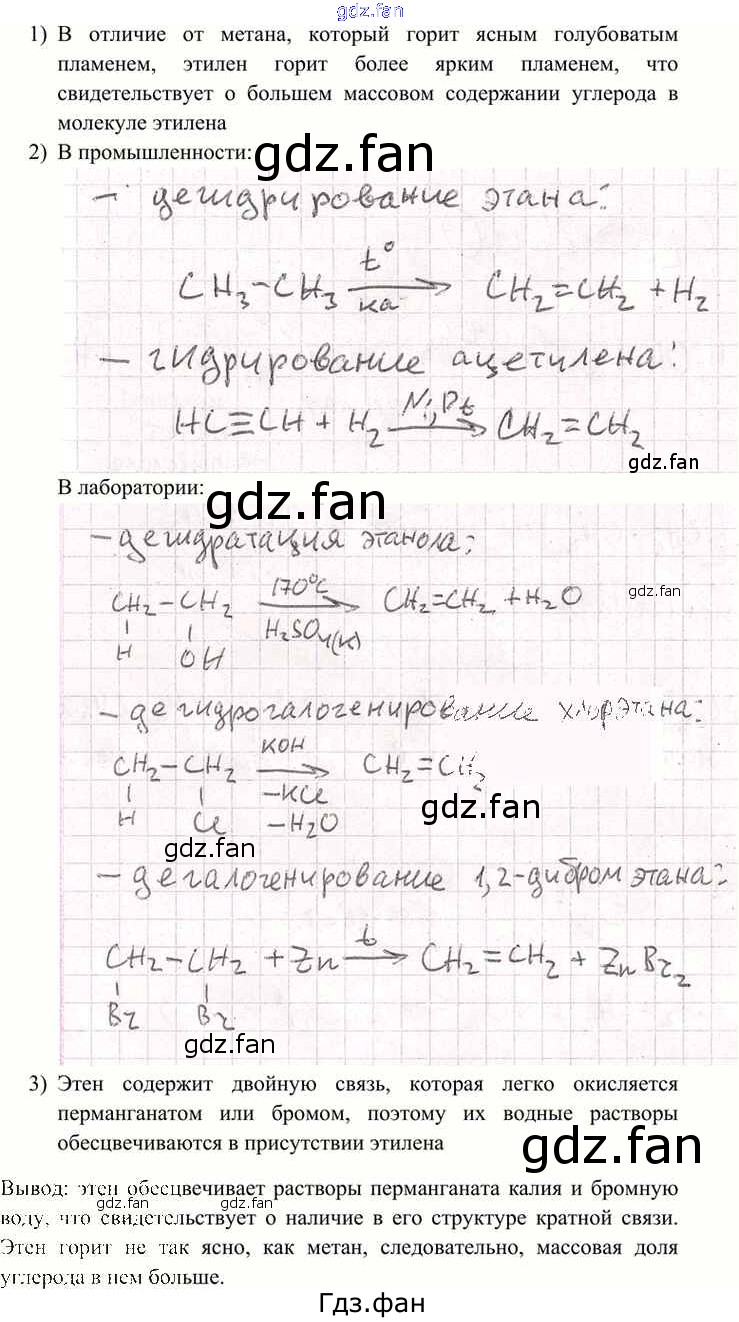 gdz.fan
1) В отличие от метана, который горит ясным голубоватым
пламенем, этилен горит более ярким пламенем, что
свидетельствует о большем массовом содержании углерода в
молекуле этилена
2) В промышленности: gdz.fan
– дегидрирование этана:
CH₃–CH₃ —t°/ка→ CH₂=CH₂ + H₂
– гидрирование ацетилена:
HC≡CH + H₂ —Ni, Pt→ CH₂=CH₂
gdz.fan
В лаборатории: gdz.fan
– дегидратация этанола:
gdz.fan
CH₂–CH₂ —170°C/H₂SO₄(к)→ CH₂=CH₂ + H₂O
H OH
– дегидрогалогенирование хлорэтана:
CH₂–CH₂ —KOH/–KCl –H₂O→ CH₂=CH₂
H Cl
gdz.fan
gdz.fan
– дегалогенирование 1,2-дибромэтана:
CH₂–CH₂ + Zn —t→ CH₂=CH₂ + ZnBr₂
Br Br
gdz.fan
3) Этен содержит двойную связь, которая легко окисляется
перманганатом или бромом, поэтому их водные растворы
обесцвечиваются в присутствии этилена
gdz.fan
Вывод: этен обесцвечивает растворы перманганата калия и бромную
gdz.fan gdz.fan
воду, что свидетельствует о наличие в его структуре кратной связи.
Этен горит не так ясно, как метан, следовательно, массовая доля
углерода в нем больше.
Гдз.фан